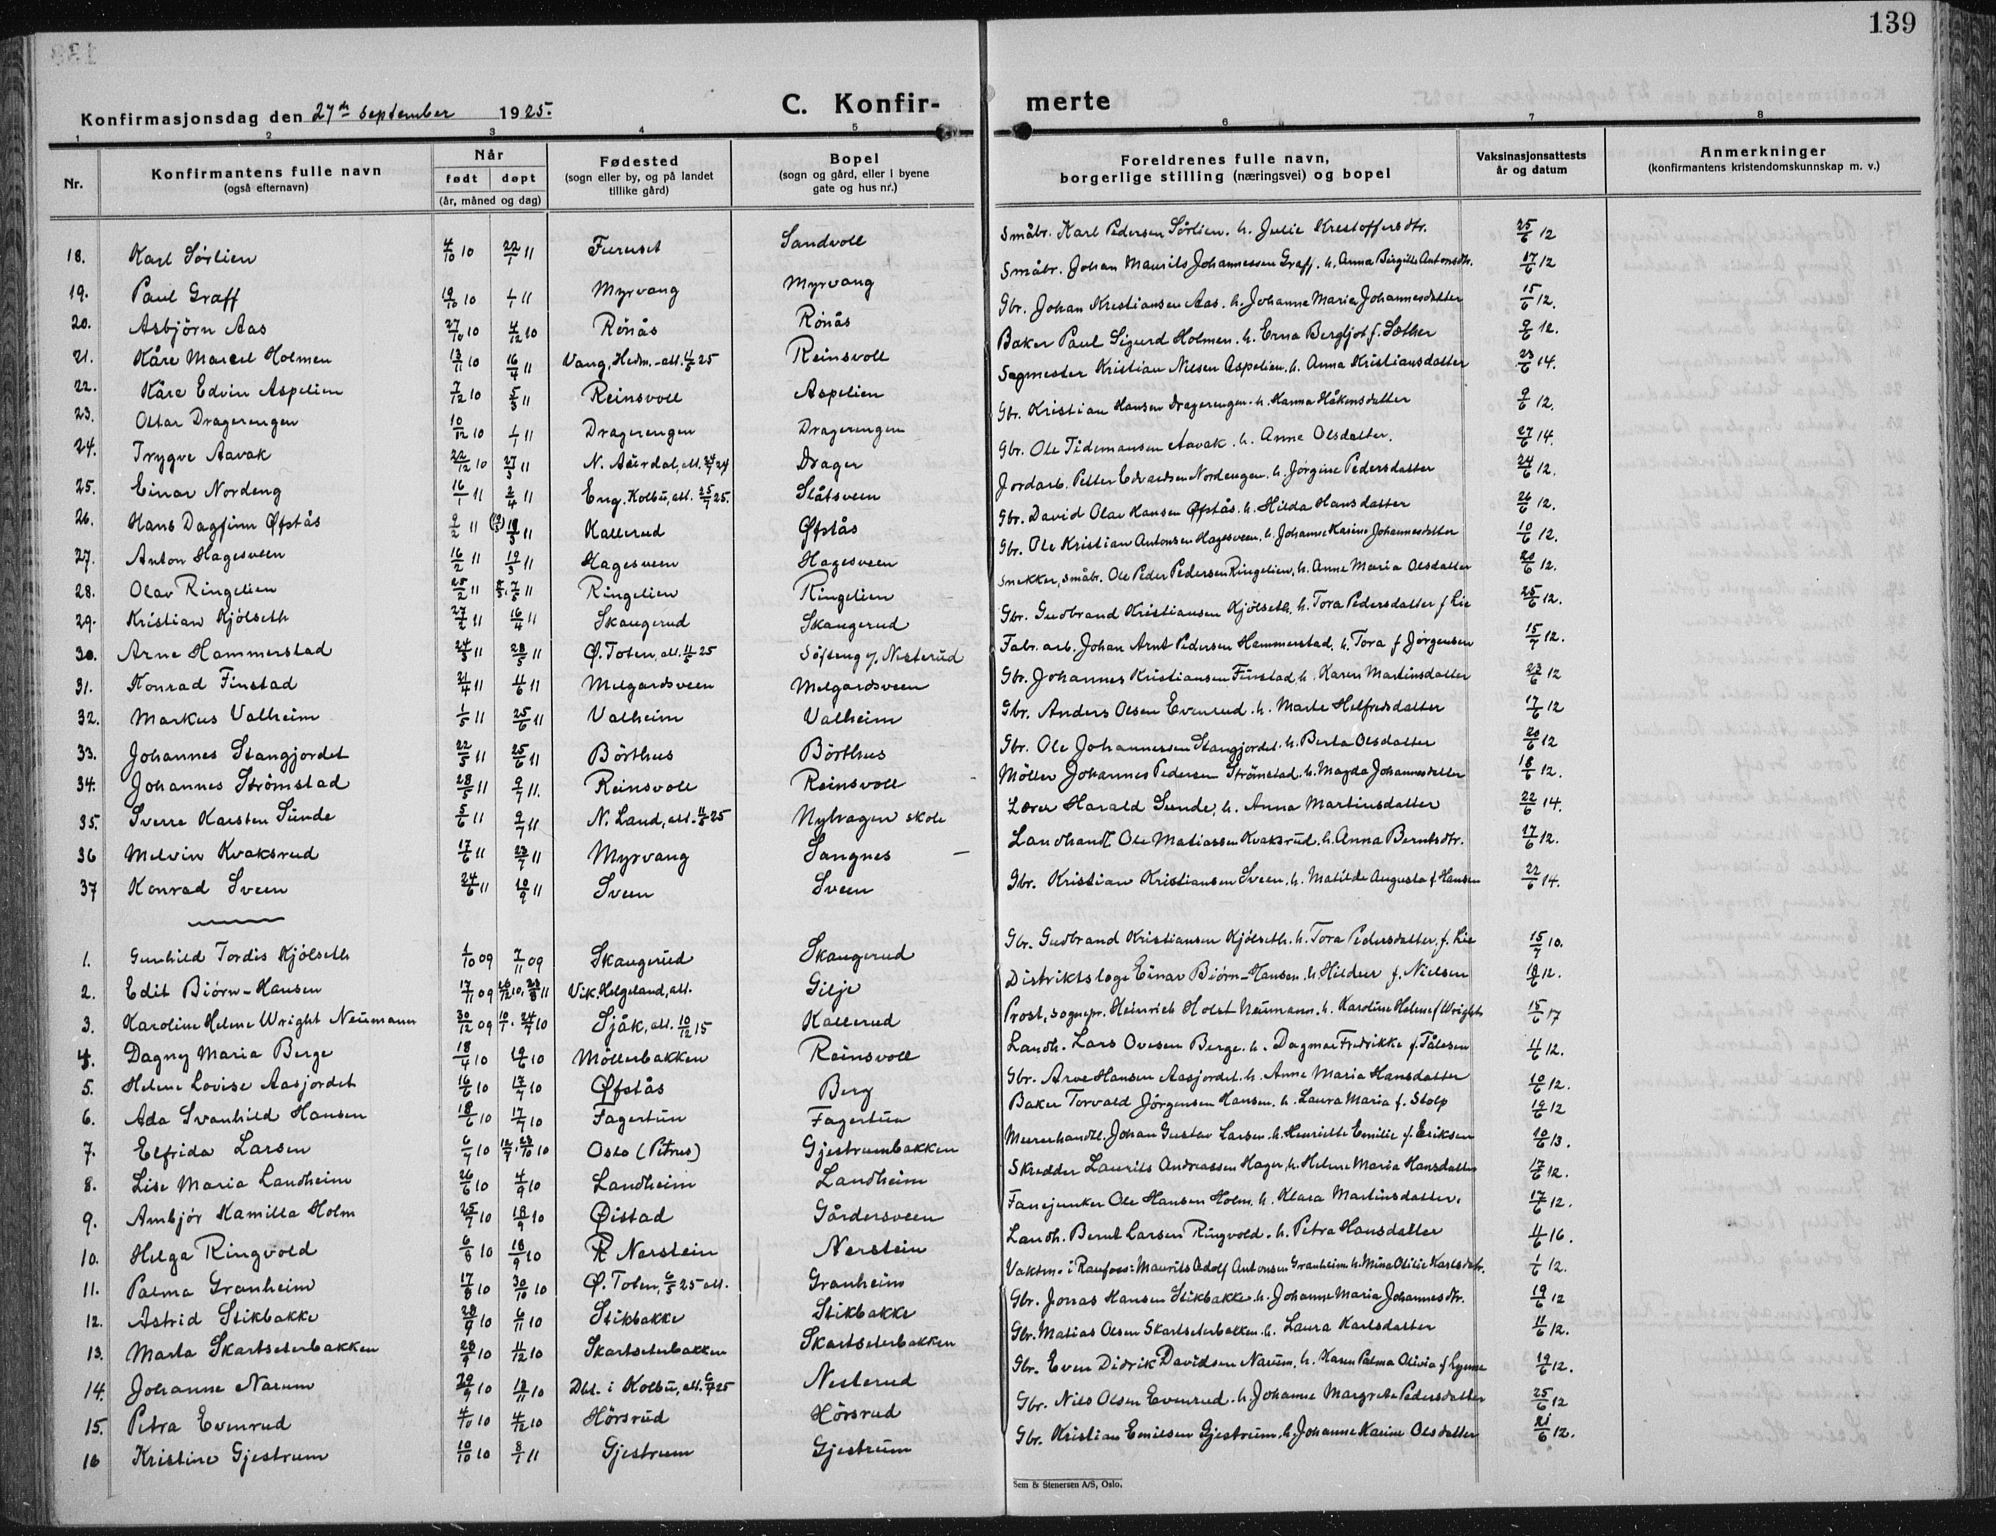 139
Konfirmasjonsdag den 27de september 1925.
C. Konfir- merte
1 2 3 4 5 6 7 8
Nr. | Konfirmantens fulle navn (også efternavn) | Når født døpt (år, måned og dag) | Fødested (sogn eller by, og på landet tillike gård) | Bopel (sogn og gård, eller i byene gate og hus nr.) | Foreldrenes fulle navn, borgerlige stilling (næringsvei) og bopel | Vaksinasjonsattests år og datum | Anmerkninger (konfirmantens kristendomskunnskap m. v.)
18. Karl Sørlien 4/10 10 22/1 11 Furuset Sandvoll Småbr. Karl Pedersen Sørlien. h. Julie Krestoffersdtr. 25/6 12
19. Paul Graff 19/10 10 1/1 11 Myrvang Myrvang Småbr. Johan Maurits Johannessen Graff. h. Anna Birgitte Antonsdtr. 17/6 12
20. Asbjörn Aas 27/10 10 4/12 10 Rönås Rönås Gbr. Johan Kristiansen Aas. h. Johanne Maria Johannesdatter 15/6 12.
21. Kåre Marcel Holmen 13/11 10 16/4 11 Vang, Hedm. att. 11/6 25 Reinsvoll Baker Paul Sigurd Holmen. h. Erna Bergljot f. Sæther 9/6 12.
22. Kåre Edvin Aspelien 7/12 10 5/3 11 Reinsvoll Aspelien Sagmester Kristian Nilsen Aspelien. h. Anna Kristiansdatter 23/6 14.
23. Ottar Dragerengen 10/12 10 1/1 11 Dragerengen Dragerengen Gbr. Kristian Hansen Dragerengen. h. Hanna Håkensdatter 9/6 12.
24. Trygve Aavak 22/12 10 27/3 11 N. Aurdal, att. Drager Gbr. Ole Tidemansen Aavak. h. Anne Olsdatter. 27/6 14.
25. Einar Nordeng 16/1 11 2/4 11 Eng. Kolbu, att. 25/7 25. Slåtsveen Jordarb. Petter Edvardsen Nordengen. h. Jørgine Pedersdatter 24/6 12.
26. Hans Dagfinn Øfstås 9/2 11 18/3 11 Kallerud Øfstås Gbr. David Olav Hansen Øfstås. h. Hilda Hansdatter 26/6 12.
27. Anton Hagesveen 16/2 11 19/3 11 Hagesveen Hagesveen Gbr. Ole Kristian Antonsen Hagesveen. h. Johanne Karine Johannesdatter 10/6 12.
28. Olav Ringelien 25/2 11 7/6 11 Ringelien Ringelien Snekker, småbr. Ole Peder Pedersen Ringelien, h. Anne Maria Olsdatter 20/6 12.
29. Kristian Kjölseth 27/2 11 16/4 11 Skaugerud Skaugerud Gbr. Gudbrand Kristiansen Kjölseth, h. Tora Pedersdatter f. Lie 25/6 12.
30. Arne Hammerstad 24/3 11 28/5 11 Ø. Toten, att. 11/5 25 Söfteng v. Nesterud Fabr. arb. Johan Arnt Pedersen Hammerstad, h. Tora f Jørgensen 15/7 12.
31. Konrad Finstad 21/4 11 4/6 11 Melgardsveen Melgardsveen Gbr. Johannes Kristiansen Finstad, h. Karen Martinsdatter 23/6 12
32. Markus Valheim 1/5 11 25/6 11 Valheim Valheim Gbr. Anders Olsen Evenrud. h. Marte Helfredsdatter 17/6 12
33. Johannes Stangjordet 22/5 11 25/6 11 Börthus Börthus Gbr. Ole Johannessen Stangjordet. h. Berta Olsdatter 20/6 12
34. Johannes Strömstad 28/5 11 9/7 11. Reinsvoll Reinsvoll Möller Johannes Pedersen Strömstad. h. Magda Johannesdatter 18/6 12.
35. Sverre Karsten Sunde 5/6 11 9/7 11 N. Land, att. 11/5 25 Nylvagen skole Lærer Harald Sunde, h. Anna Martinsdatter 22/6 14.
36 Melvin Kvaksrud 17/6 11 23/7 11 Myrvang Sangnes Landhandl Ole Matiassen Kvaksrud. h. Anna Berntsdtr. 17/6 12.
37 Konrad Sveen 24/6 11 10/9 11 Sveen Sveen Gbr. Kristian Kristiansen Sveen, h. Matilde Augusta f. Hansen 22/6 14.
1. Gunhild Tordis Kjölseth 1/10 09 7/11 09 Skaugerud Skaugerud Gbr. Gudbrand Kristiansen Kjölseth. h. Tora Pedersdatter, f. Lie 15/7 10.
2. Edit Biörn-Hansen 17/11 09 Vik. Helgeland, att. Gilje Distriktslege Einar Biörn-Hansen. h. Hildur f. Nielsen 18/6 12.
3. Karoline Helene Wright Neumann 30/12 09 10/7. 24/7 10 Sjåk, att. 10/12 15 Kallerud Prost, sognepr. Heinrich Holst Neumann. h. Karoline Helene f. Wright 15/6 17
4. Dagny Maria Berge 18/4 10 19/6 10 Möllerbakken Reinsvoll Landh. Lars Ovesen Berge. h. Dagmar Fredrikke f. Tålesen 4/6 12.
5. Helene Lovise Aasjordet 16/6 10 17/7 10 Øfstås Berg Gbr. Arve Hansen Aasjordet. h. Anne Maria Hansdatter 10/6 12.
6. Ada Svanhild Hansen 18/6 10 17/7 10 Fagertun Fagertun Baker Torvald Jörgensen Hansen, h. Laura Maria f. Stolp 19/6 12
7. Elfrida Larsen 6/7 10 10 Oslo (Petrus) Gjestrumbakken Meierhandtl. Johan Gustav Larsen. h. Henriette Emilie f. Eriksen 10/6 13.
8. Lise Maria Landheim 26/6 10 4/9 10 Landheim Landheim Skredder Laurits Andreassen Hager, h. Helene Maria Hansdatter 17/6 12.
9. Ambjör Kamilla Holm 25/7 10 18/9 10 Øistad Gårdersveen Fanejunker Ole Hansen Holm. h. Klara Martinsdatter. 17/6 12.
10. Helga Ringvold 6/8 10 18/9 10 Nerstein Nerstein Landh. Bernt Larsen Ringvold. h. Petra Hansdatter 4/6 16.
11. Palma Granheim 17/8 10 30/10 10 Ø. Toten, 6/5 25 att. Granheim Vaktm. i Raufoss: Maurits Adolf Antonsen Granheim h. Mina Otilie Karlsdtr. 1/6 12.
12. Astrid Stikbakke 28/9 10 6/11 10 Stikbakke Stikbakke Gbr. Jonas Hansen Stikbakke. h. Johanne Maria Johannesdtr. 19/6 12
13. Marta Skartseterbakken 28/9 10 11/12 10 Skartseterbakken Skartseterbakken Gbr. Matias Olsen Skartseterbakken. h. Laura Karlsdatter 11/6 12.
14. Johanne Narum 29/9 10 13/11 10 Dbt. i Kolbu, att. 6/7 25 Nesterud Gbr. Even Didrik Davidsen Narum, h. Karen Palma Olivia f. Lynne 19/6 12.
15. Petra Evenrud 4/10 10 4/12 10 Hörsrud Hörsrud Gbr. Nils Olsen Evenrud. h. Johanne Margrete Pedersdatter 25/6 12
16 Kristine Gjestrum 10/10 10 8/1 11 Gjestrum Gjestrum Gbr. Kristian Emilsen Gjestrum, h. Johanne Karine Olsdatter 21/6 12.
Sem & Stenersen A/S, Oslo.